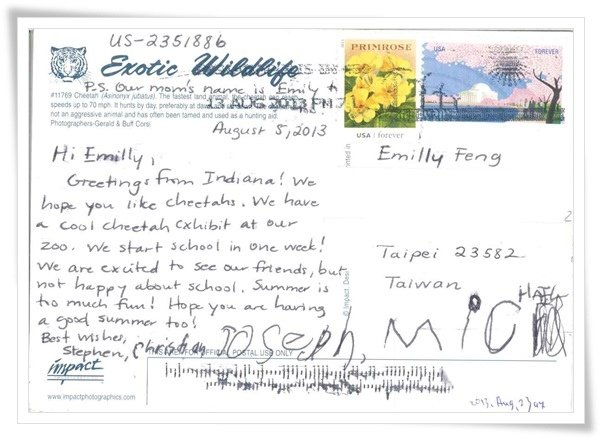 US-2351886
Exotic Wildlife
P.S. Our mom's name is Emily
#11769 Cheetah (Asinonyx jubatus). The fastest land
speeds up to 70 mph. It hunts by day, preferably at
not an aggressive animal and has often been tamed and used as a hunting aid.
Photographers-Gerald & Buff Corsi
13 AUG 2013 PM
August 5, 2013
PRIMROSE
USA forever
USA
FOREVER
Hi Emilly,
Greetings from Indiana! We
hope you like cheetahs. We have
a cool cheetah exhibit at our
zoo. We start school in one week!
We are excited to see our friends, but
not happy about school. Summer is
too much fun! Hope you are having
a good summer too!
Best wishes,
Stephen, Christian Joseph,
Emilly Feng
Taipei 23582
Taiwan
© Impact,
FOR OFFICIAL POSTAL USE ONLY
impact
www.impactphotographics.com
2013, Aug, 27